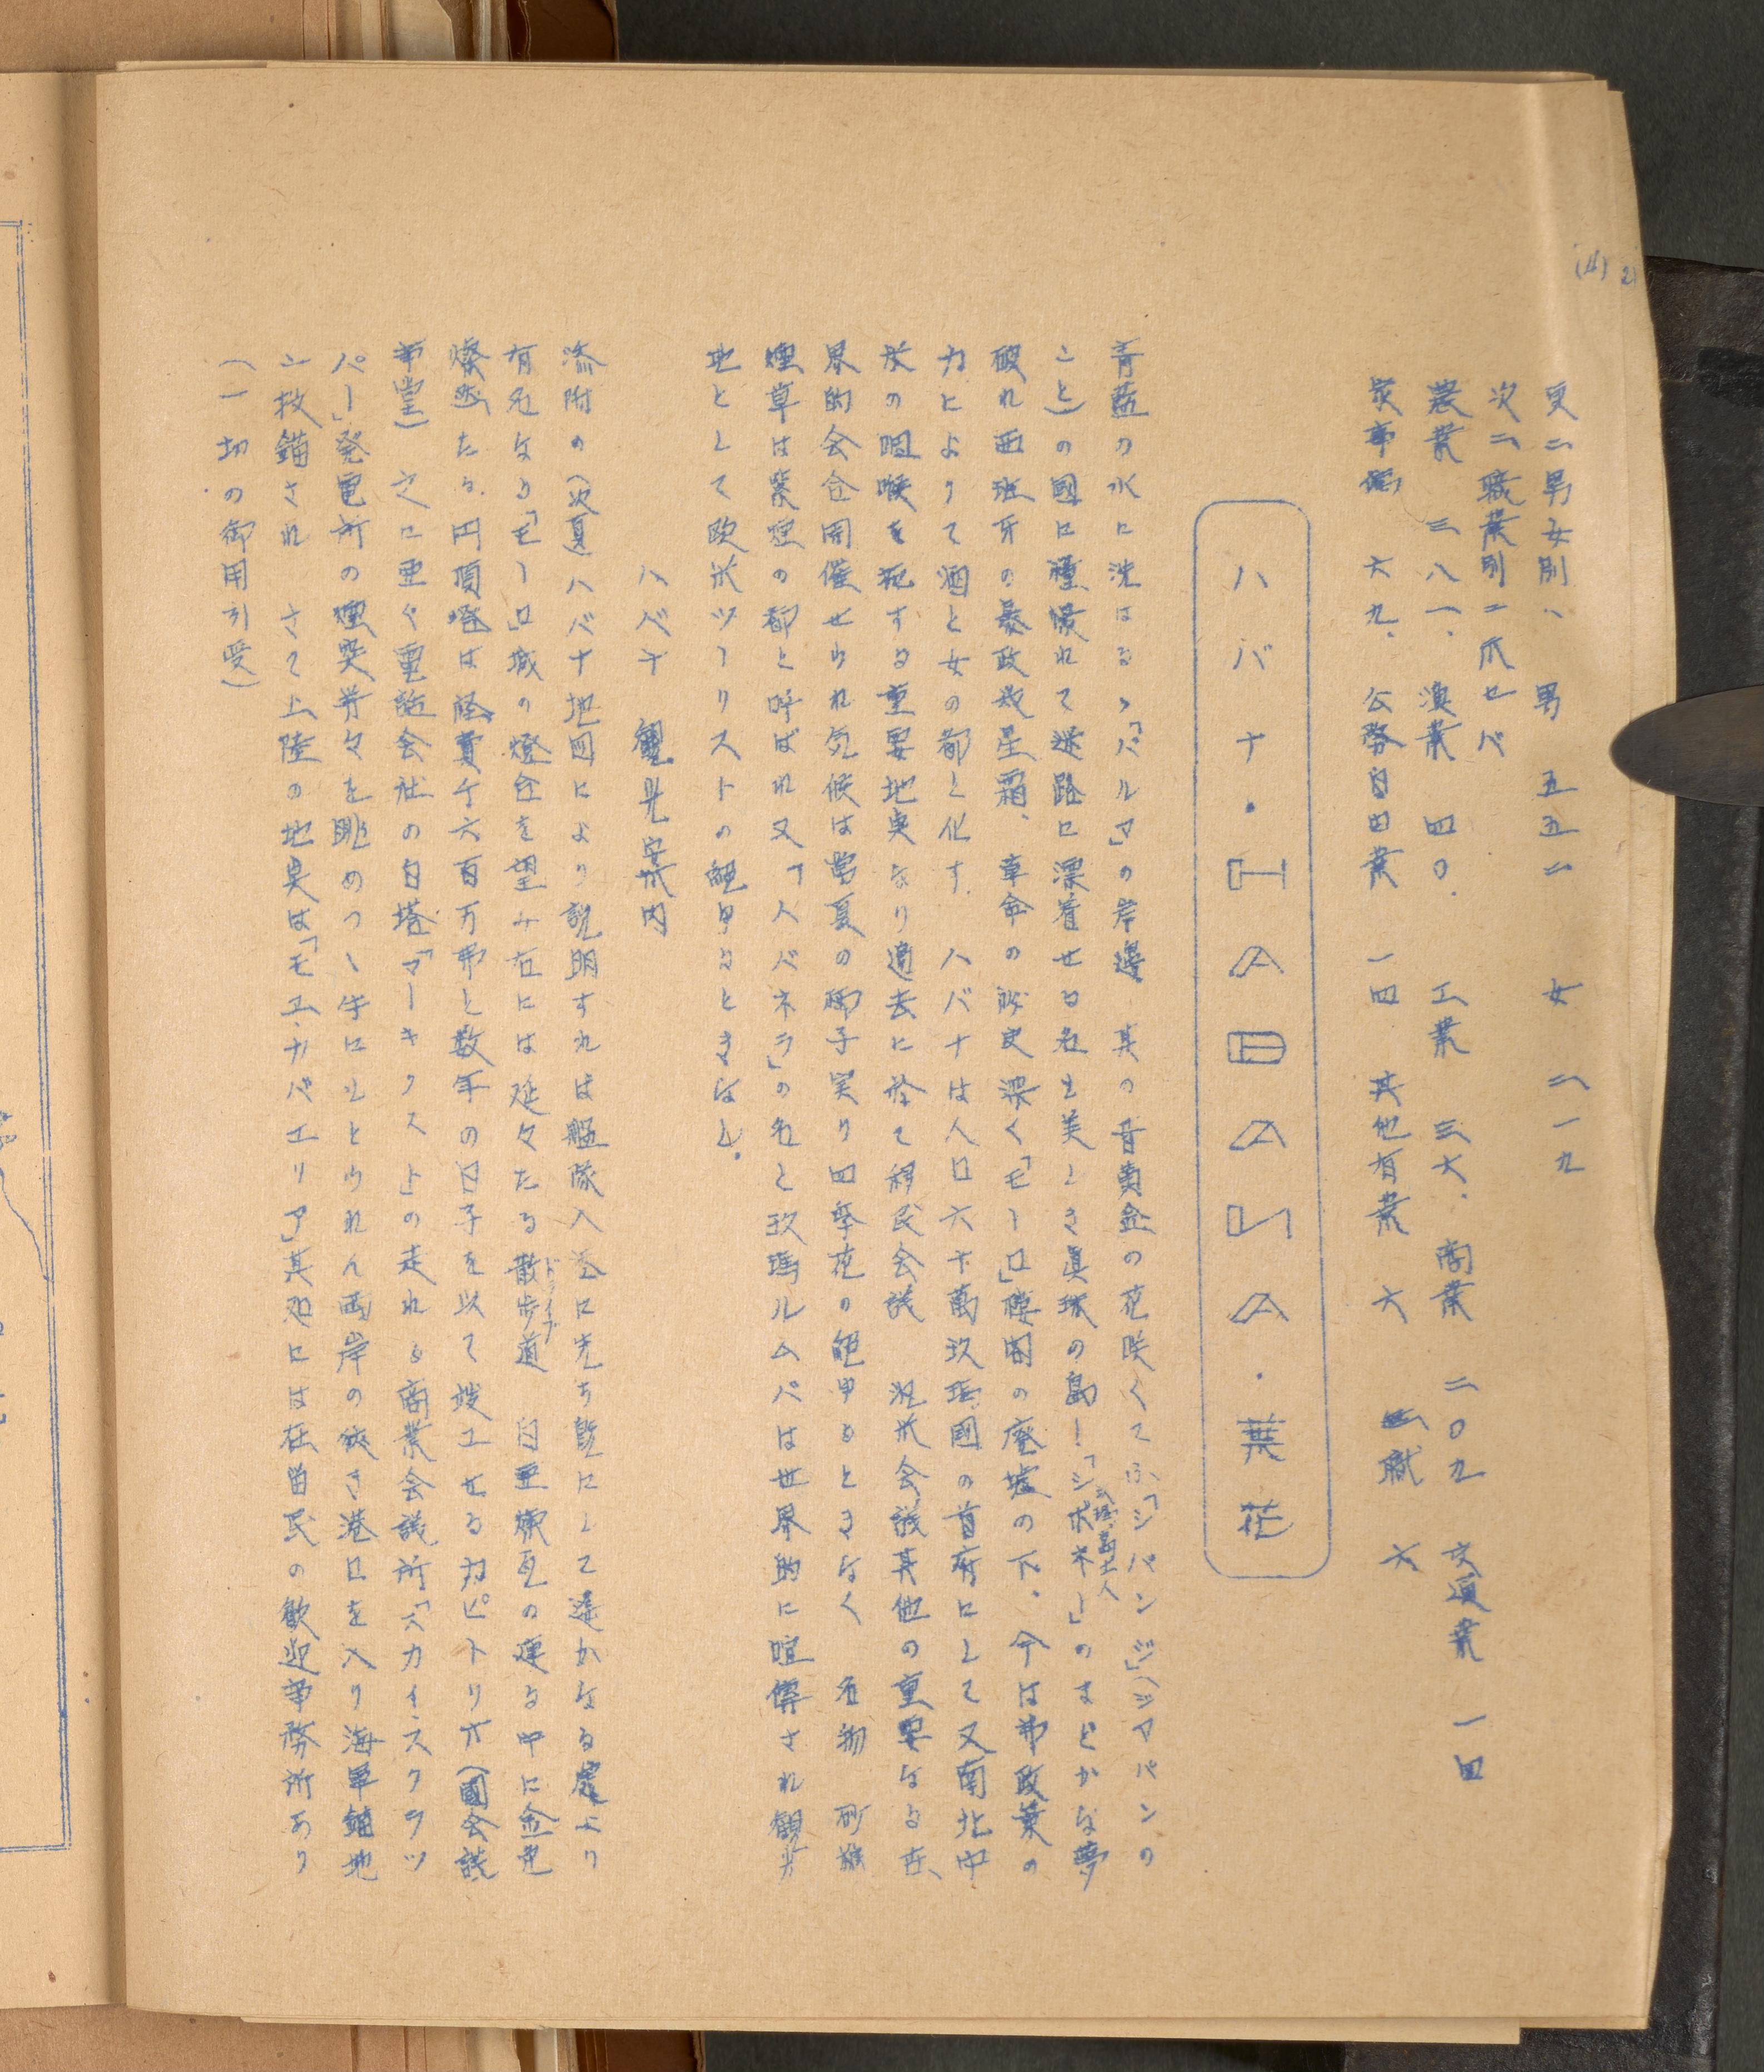 (4) 21
更ニ男女別ハ 男 五五二 女 二一九
次ニ職業別ニ爪セバ
農業 三八一. 漁業 四〇. 工業 三六. 商業 二〇九 交通業 一四
家事 六九. 公務自由業 一四 其他有業 六 無職 六
ハバナ・HABANA・葉花
青藍の水に洗はるゝ「パルマ」の岸邊 其の昔黄金の花咲くてふ「ジパンジ」(ジヤパンの
こと)の國に憧憬れて迷路に漂着せる名も美しき真珠の島!「シボネー」のまどかな夢
破れ西班牙の暴政幾星霜、革命の秘史深く「モーロ」樓閣の廃墟の下. 今は弗政策の
力によりて酒と女の都と化す. ハバナは人口六十萬玖瑪國の首府にして又南北中
米の咽喉を扼する重要地奌なり過去に於て移民会議 汎米会議其他の重要なる世
界的会合開催せられ気候は常夏の椰子実り四季花の絶甲るときなく 名物 砂糖
煙草は紫煙の都と呼ばれ又「ハバネラ」の名と玖瑪ルムバは世界的に喧傳され観光
地として欧米ツーリストの絶甲るときなし.
ハバナ 観光案内
添附の(次頁)ハバナ地図により説明すれば艦隊入港に先ち既にして遥かなる處より
有名なる「モーロ」城の燈台を望み右には延々たる散歩道 白亜 の連る中に金色
ドライブ
燦然たる円頂 は経費千六百万弗と数年の日子を以て竣工せるカピトリオ(國会議
事堂)之に亜ぐ電話会社の白塔「マーキクスト」の走れる商業会議所「スカイスクラツ
パー」発電所の煙突等々を眺めつゝ牛にもとられん両岸の狭き港口を入り海軍錨地
に投錨され さて上陸の地奌は「モエ・ナバエリア」其処には在留民の歓迎事務所あり
(一切の御用引受)